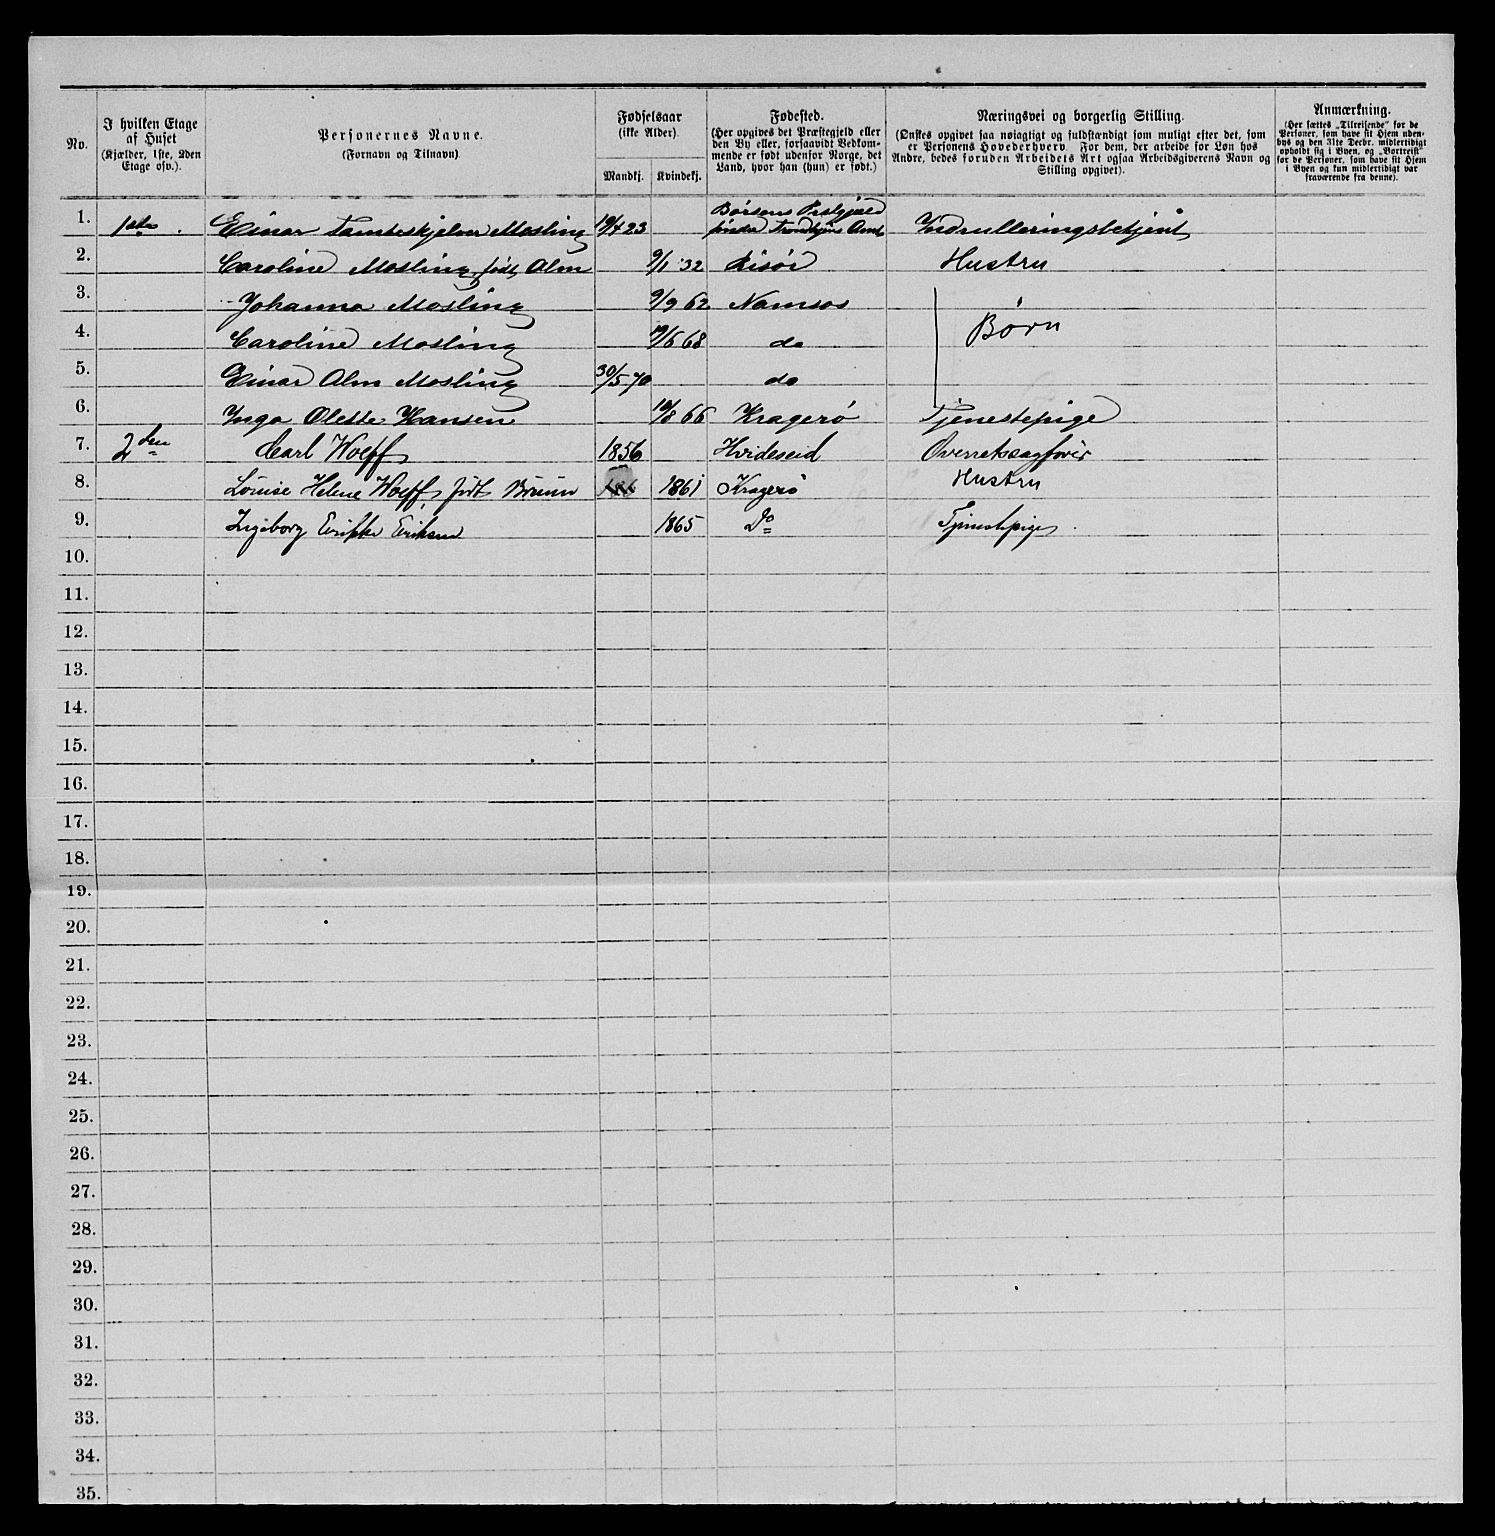 No.
I hvilken Etage
af Huset
(Kjælder, 1ste, 2den
Etage osv.).
Personernes Navne.
(Fornavn og Tilnavn)
Fødselsaar
(ikke Alder)
Mandkj. Kvindekj.
Fødested.
(Her opgives det Præstegjeld eller
den By eller, forsaavidt Vedkom-
mende er født udenfor Norge, det
Land, hvor han (hun) er født.)
Næringsvei og borgerlig Stilling.
(Ønskes opgivet saa nøiagtigt og fuldstændigt som muligt efter det, som
er Personens Hovederhverv. For dem, der arbeide for Løn hos
Andre, bedes foruden Arbeidets Art ogsaa Arbeidsgiverens Navn og
Stilling opgivet).
Anmærkning.
(Her sættes „Tilreisende" for de
Personer, som have sit Hjem uden-
bys og den 31te Decbr. midlertidigt
opholdt sig i Byen, og „Bortreist"
for de Personer, som have sit Hjem
i Byen og kun midlertidigt var
fraværende fra denne).
1. 1ste Einar Tambeskjelver Mosling 23 Børsens
Trondhjems Amt Indrulleringsbetjent
2. Caroline Mosling født Alm 9/1 32 Risør Hustru
3. Johanna Mosling 9/9 62 Namsos
4. Caroline Mosling 68 do Børn
5. Einar Alm Mosling 30/5 70 do
6. Inga Olette Hansen 66 Kragerø Tjenestepige
7. 2den Carl Wolff 1856 Hvideseid Overretssagfører
8. Louise Helene Wolff, født 1861 Kragerø Hustru
9. Ingeborg Eriksen 1865 Do Tjenestepige
10.
11.
12.
13.
14.
15.
16.
17.
18.
19.
20.
21.
22.
23.
24.
25.
26.
27.
28.
29.
30.
31.
32.
33.
34.
35.